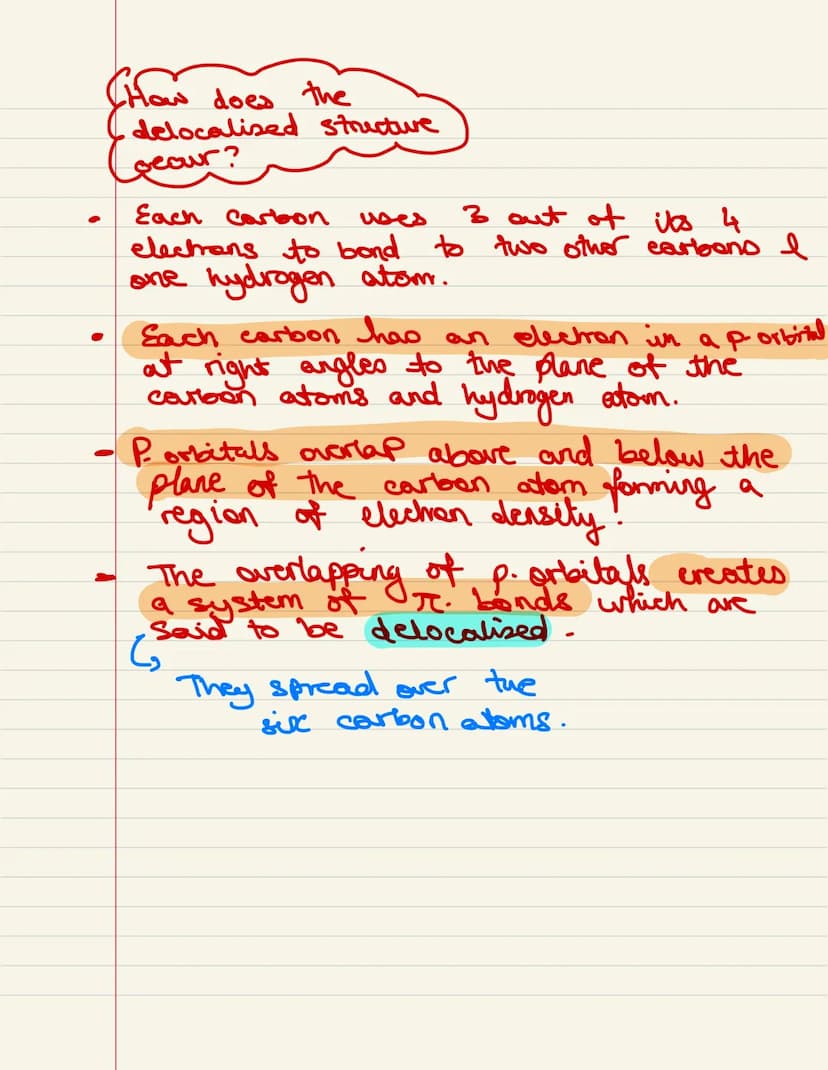 How does the
delocalised structure
occur?
• Each carbon uses 3 out of its 4
electrons to bond to two other carbons &
one hydrogen atom.
• Each carbon has an electron in a p orbital
at right angles to the plane of the
carbon atoms and hydrogen atom.
- P. orbitals overlap above and below the
plane of the carbon atom forming a
region of electron density.
- The overlapping of p. orbitals creates
a system of π. bonds which are
said to be delocalised.
They spread over the
six carbon atoms.